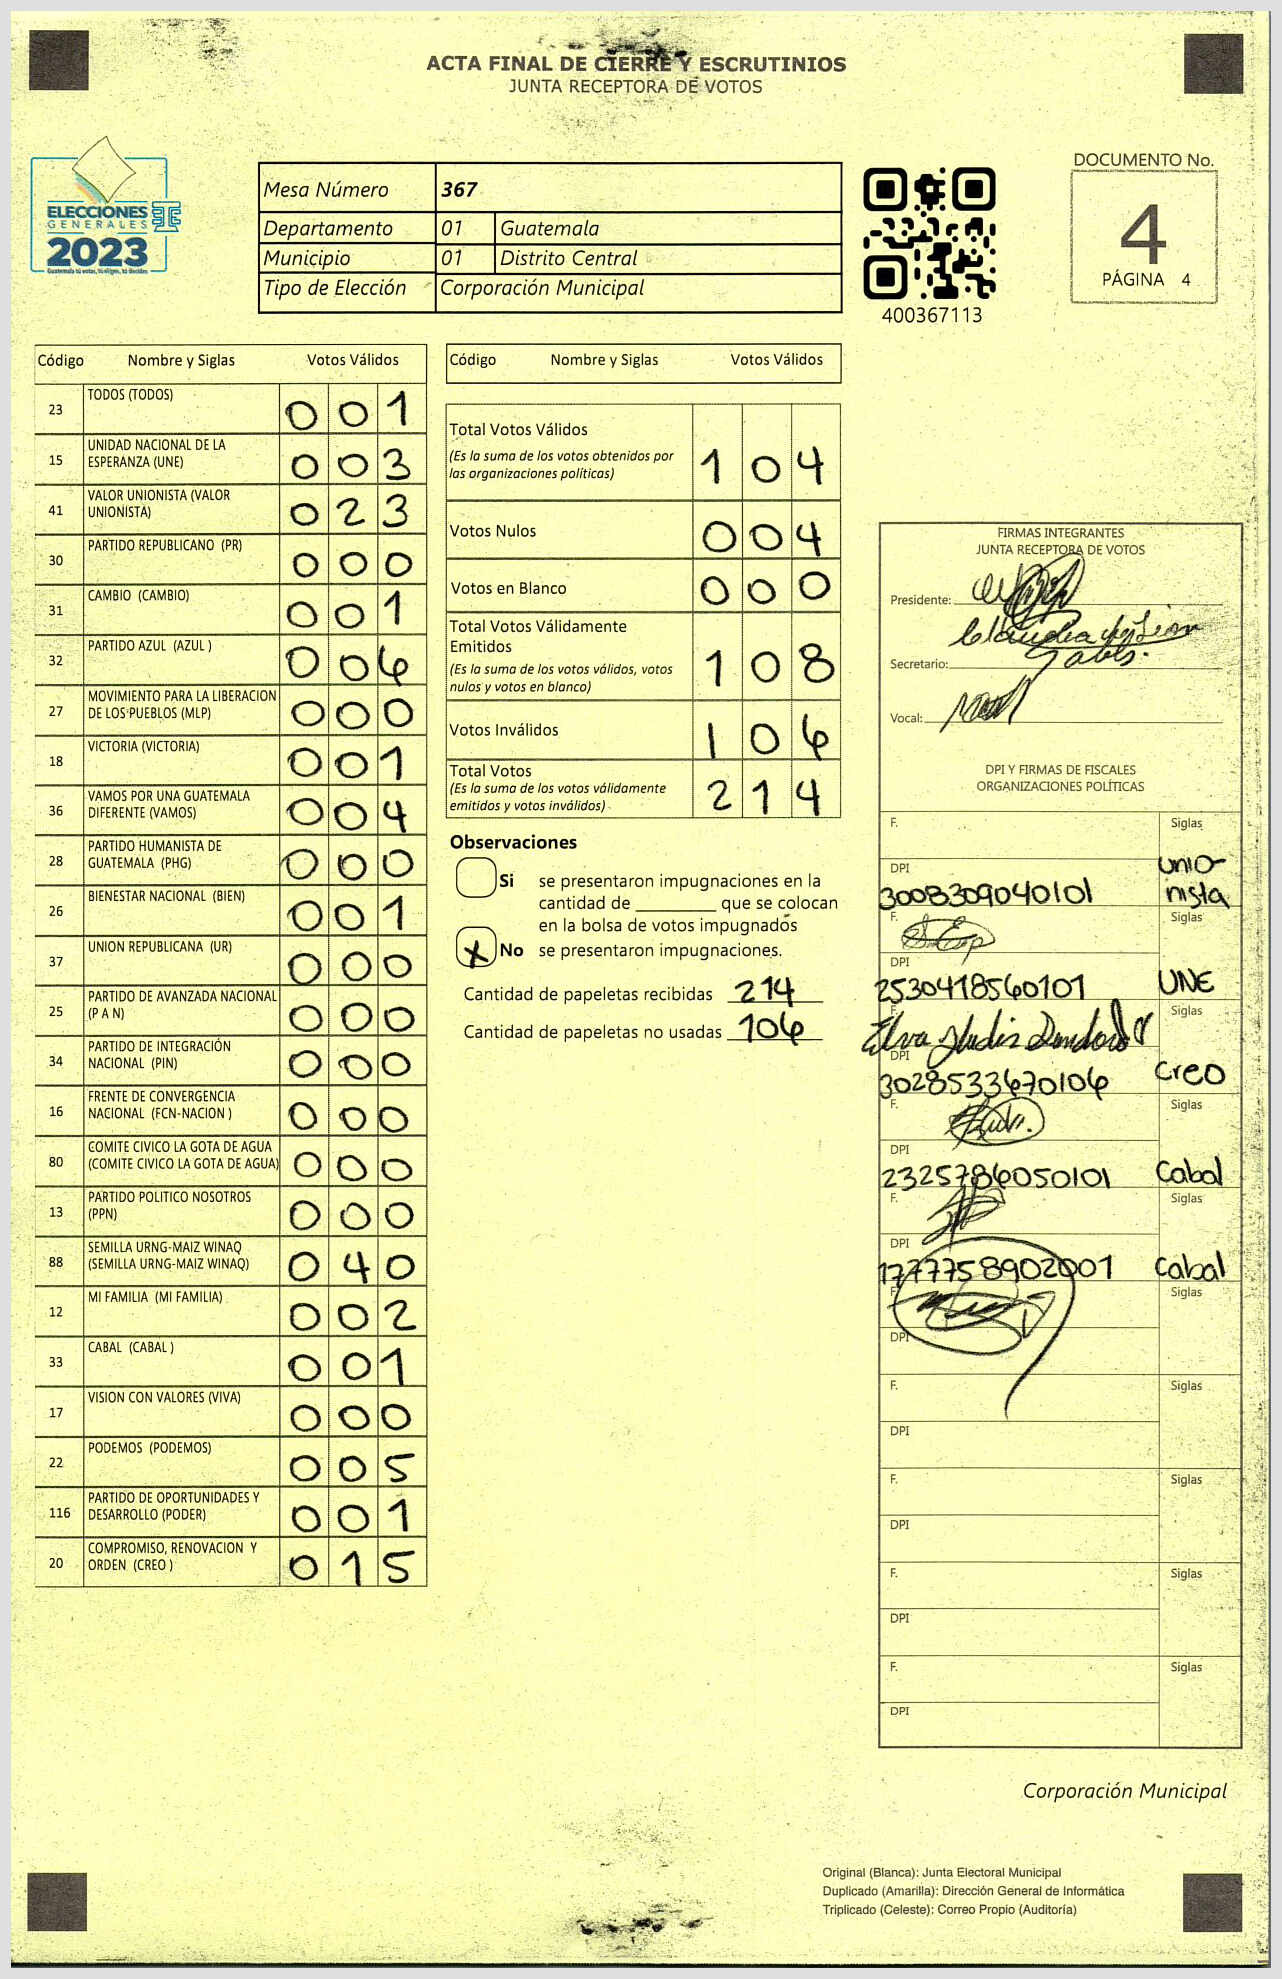 ACTA FINAL DE CIERRE Y ESCRUTINIOS
JUNTA RECEPTORA DE VOTOS
ELECCIONES
GENERALES
2023
Guatemala tú votas, tú eliges, tú decides
Mesa Número 367
Departamento 01 Guatemala
Municipio 01 Distrito Central
Tipo de Elección Corporación Municipal
400367113
DOCUMENTO No.
4
PÁGINA 4
Código Nombre y Siglas Votos Válidos
23 TODOS (TODOS) 0 0 1
15 UNIDAD NACIONAL DE LA ESPERANZA (UNE) 0 0 3
41 VALOR UNIONISTA (VALOR UNIONISTA) 0 2 3
30 PARTIDO REPUBLICANO (PR) 0 0 0
31 CAMBIO (CAMBIO) 0 0 1
32 PARTIDO AZUL (AZUL ) 0 0 6
27 MOVIMIENTO PARA LA LIBERACION DE LOS PUEBLOS (MLP) 0 0 0
18 VICTORIA (VICTORIA) 0 0 1
36 VAMOS POR UNA GUATEMALA DIFERENTE (VAMOS) 0 0 4
28 PARTIDO HUMANISTA DE GUATEMALA (PHG) 0 0 0
26 BIENESTAR NACIONAL (BIEN) 0 0 1
37 UNION REPUBLICANA (UR) 0 0 0
25 PARTIDO DE AVANZADA NACIONAL (P A N) 0 0 0
34 PARTIDO DE INTEGRACIÓN NACIONAL (PIN) 0 0 0
16 FRENTE DE CONVERGENCIA NACIONAL (FCN-NACION ) 0 0 0
80 COMITE CIVICO LA GOTA DE AGUA (COMITE CIVICO LA GOTA DE AGUA) 0 0 0
13 PARTIDO POLITICO NOSOTROS (PPN) 0 0 0
88 SEMILLA URNG-MAIZ WINAQ (SEMILLA URNG-MAIZ WINAQ) 0 4 0
12 MI FAMILIA (MI FAMILIA) 0 0 2
33 CABAL (CABAL ) 0 0 1
17 VISION CON VALORES (VIVA) 0 0 0
22 PODEMOS (PODEMOS) 0 0 5
116 PARTIDO DE OPORTUNIDADES Y DESARROLLO (PODER) 0 0 1
20 COMPROMISO, RENOVACION Y ORDEN (CREO ) 0 1 5
Código Nombre y Siglas Votos Válidos
Total Votos Válidos
(Es la suma de los votos obtenidos por las organizaciones políticas) 1 0 4
Votos Nulos 0 0 4
Votos en Blanco 0 0 0
Total Votos Válidamente Emitidos
(Es la suma de los votos válidos, votos nulos y votos en blanco) 1 0 8
Votos Inválidos 1 0 6
Total Votos
(Es la suma de los votos válidamente emitidos y votos inválidos) 2 1 4
Observaciones
Si se presentaron impugnaciones en la
cantidad de ________ que se colocan
en la bolsa de votos impugnados
X No se presentaron impugnaciones.
Cantidad de papeletas recibidas 214
Cantidad de papeletas no usadas 106
FIRMAS INTEGRANTES
JUNTA RECEPTORA DE VOTOS
Presidente:
Claudia de León
Secretario:
Vocal:
DPI Y FIRMAS DE FISCALES
ORGANIZACIONES POLÍTICAS
F. Siglas
DPI unio-
3008309040101 nista
F. Siglas
DPI
2530418560101 UNE
F. Siglas
Elva
DPI
3028533670106 Creo
F. Siglas
DPI
2325786050101 Cabal
F. Siglas
DPI
1777758902001 Cabal
F. Siglas
DPI
F. Siglas
DPI
F. Siglas
DPI
F. Siglas
DPI
F. Siglas
DPI
Corporación Municipal
Original (Blanca): Junta Electoral Municipal
Duplicado (Amarilla): Dirección General de Informática
Triplicado (Celeste): Correo Propio (Auditoría)